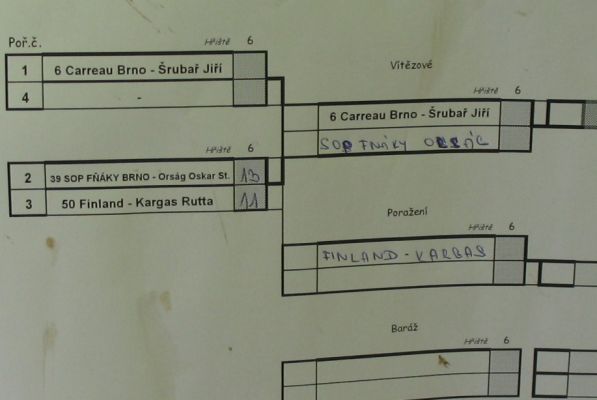 Poř.č.
Hřiště 6
1 6 Carreau Brno - Šrubař Jiří
4 -
Hřiště 6
2 39 SOP FŇÁKY BRNO - Orság Oskar St. 13
3 50 Finland - Kargas Rutta 11
Vítězové
Hřiště 6
6 Carreau Brno - Šrubař Jiří
SOP FŇÁKY
Poražení
Hřiště 6
FINLAND - KARGAS
Baráž
Hřiště 6